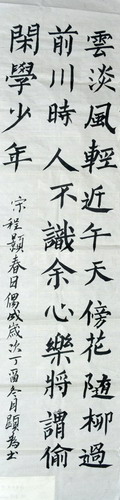 雲淡風輕近午天傍花隨柳過
前川時人不識余心樂將謂偷
閑學少年
宗程顥春日偶成歲次丁酉冬月顕為士